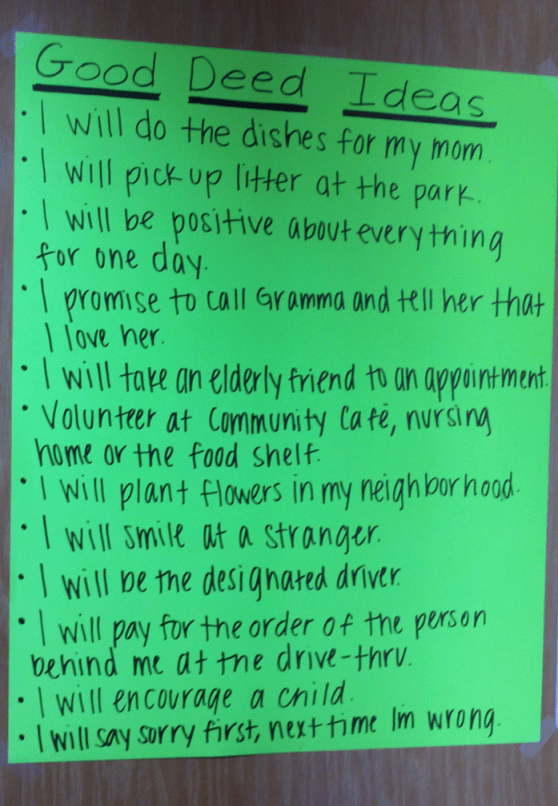 Good Deed Ideas
• I will do the dishes for my mom.
• I will pick up litter at the park.
• I will be positive about everything
for one day.
• I promise to call Gramma and tell her that
I love her.
• I will take an elderly friend to an appointment.
• Volunteer at Community Café, nursing
home or the food shelf.
• I will plant flowers in my neighborhood.
• I will smile at a stranger.
• I will be the designated driver.
• I will pay for the order of the person
behind me at the drive-thru.
• I will encourage a child.
• I will say sorry first, next time Im wrong.